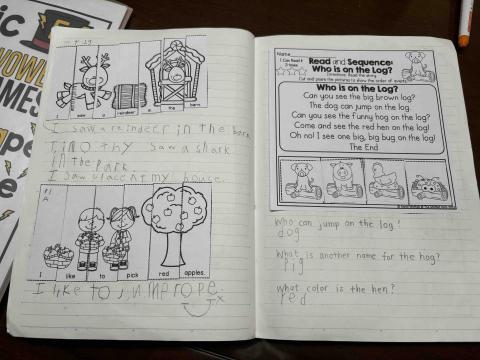 ic
VOWE
AMES
I
saw
a
reindeer
in
the
barn
I saw a reindeer in the barn
TimOthy saw a shark
in the Park
I saw
at my house.
I
like
to
pick
red
apples.
I like TO jump rope
Name
I Can Read It
3 times
Read and Sequence:
Who is on the Log?
Directions: Read the story.
Cut and paste the pictures to show the order of events.
Who is on the Log?
Can you see the big brown log?
The dog can jump on the log.
Can you see the funny hog on the log?
Come and see the red hen on the log!
Oh no! I see one big, big bug on the log!
The End
Who can jump on the log?
dog
What is another name for the hog?
Pig
What color is the hen?
red